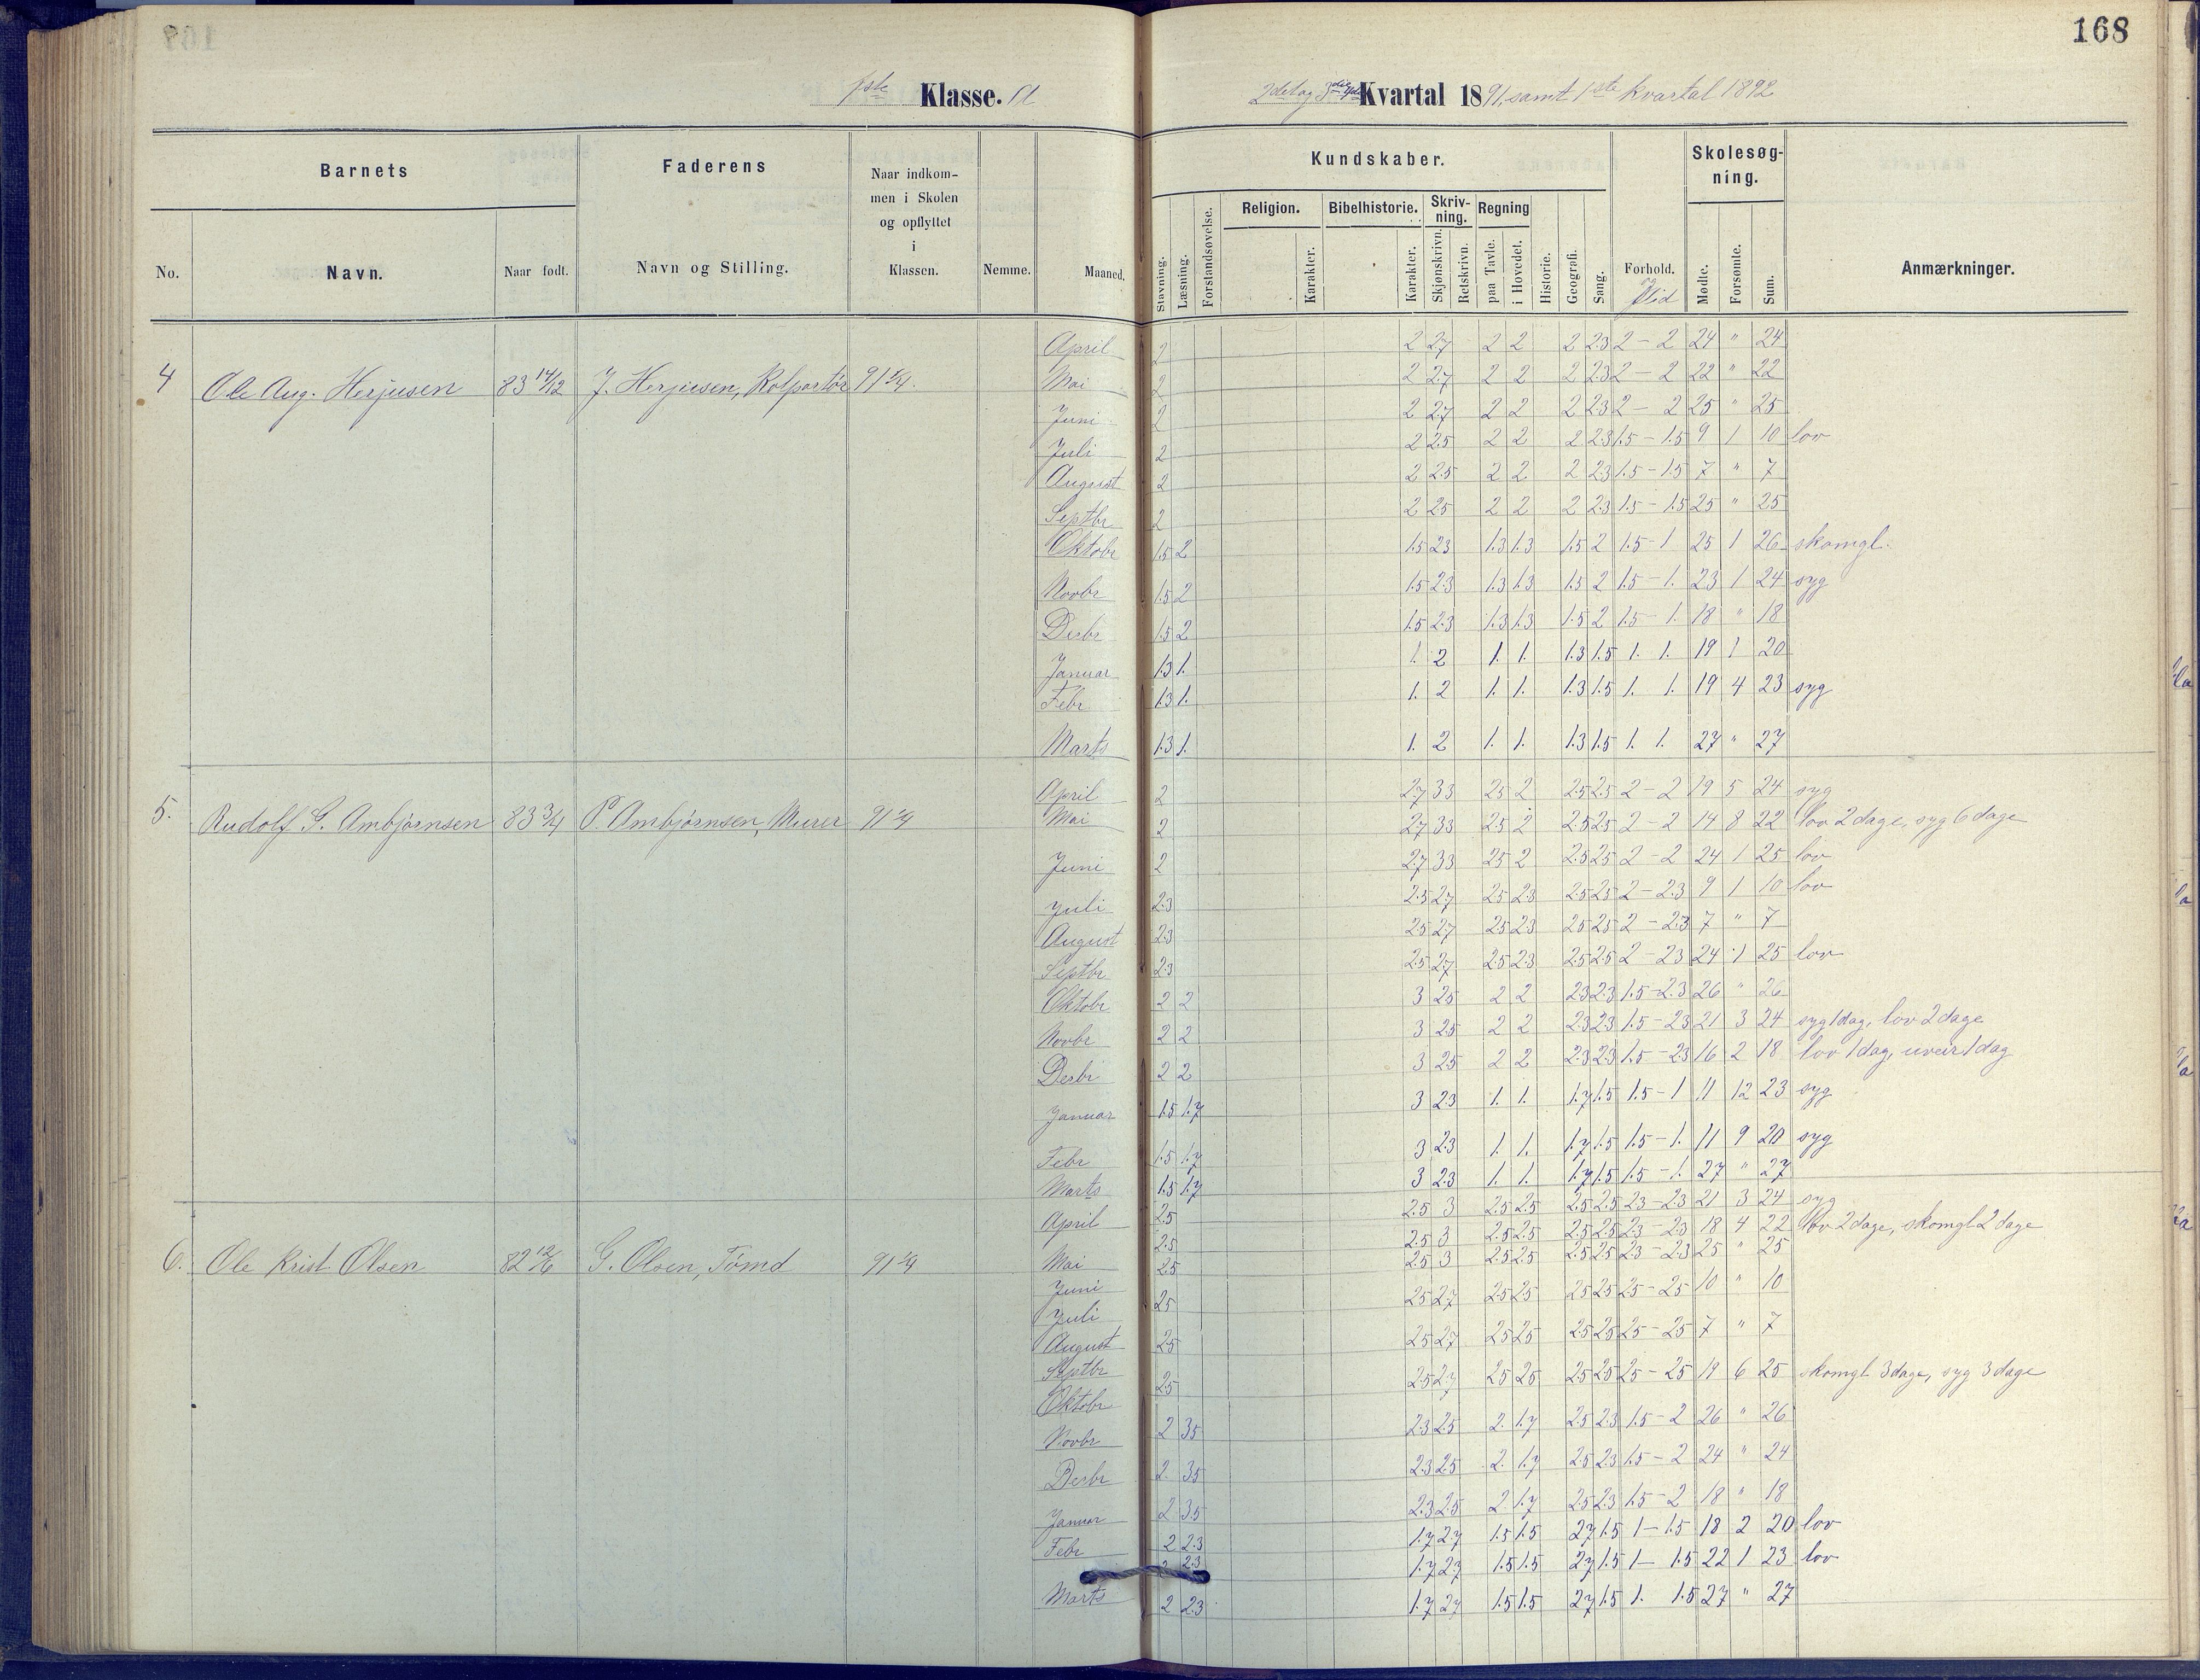 168
1ste Klasse. A
2det og 3die 4de Kvartal 1891, samt 1ste kvartal 1892
Barnets
Faderens
Naar indkommen i Skolen og opflyttet i Klassen.
Kundskaber.
Skolesøgning.
Religion. Bibelhistorie. Skrivning. Regning
No. Navn. Naar født. Navn og Stilling. Nemme. Maaned. Stavning. Læsning. Forstandsøvelse. Karakter. Karakter. Skjønskrivn. Retskrivn. paa Tavle. i Hovedet. Historie. Geografi. Sang. Forhold. og Flid Mødte. Forsømte. Sum. Anmærkninger.
4 Ole Aug. Herjusen 83 14/12 J. Herjusen, Kolportør 91 1/4.
April 2 2 2.7 2 2 2 2.3 2 - 2 24 " 24
Mai 2 2 2.7 2 2 2 2.3 2 - 2 22 " 22
Juni 2 2 2.7 2 2 2 2.3 2 - 2 25 " 25
Juli 2 2 2.5 2 2 2 2.3 1.5 - 1.5 9 1 10 lov
August 2 2 2.5 2 2 2 2.3 1.5 - 1.5 7 " 7
Septbr 2 2 2.5 2 2 2 2.3 1.5 - 1.5 25 " 25
Oktobr 1.5 2 1.5 2.3 1.3 1.3 1.5 2 1.5 - 1 25 1 26 skomgl.
Novbr 1.5 2 1.5 2.3 1.3 1.3 1.5 2 1.5 - 1. 23 1 24 syg
Desbr 1.5 2 1.5 2.3 1.3 1.3 1.5 2 1.5 - 1. 18 " 18
Januar 1.3 1. 1. 2 1. 1. 1.3 1.5 1. 1. 19 1 20
Febr 1.3 1. 1. 2 1. 1. 1.3 1.5 1. 1. 19 4 23 syg
Marts 1.3 1. 1. 2 1. 1. 1.3 1.5 1. 1. 27 " 27
5. Rudolf G. Ambjørnsen 83 3/4 P. Ambjørnsen, Murer 91 1/4
April 2 2.7 3.3 2.5 2 2.5 2.5 2 - 2 19 5 24 syg
Mai 2 2.7 3.3 2.5 2 2.5 2.5 2 - 2 14 8 22 lov 2 dage, syg 6 dage
Juni 2 2.7 3.3 2.5 2 2.5 2.5 2 - 2 24 1 25 lov
Juli 2.3 2.5 2.7 2.5 2.3 2.5 2.5 2 - 2.3 9 1 10 lov
August 2.3 2.5 2.7 2.5 2.3 2.5 2.5 2 - 2.3 7 " 7
Septbr 2.3 2.5 2.7 2.5 2.3 2.5 2.5 2 - 2.3 24 1 25 lov
Oktobr 2 2 3 2.5 2 2 2.3 2.3 1.5 - 2.3 26 " 26
Novbr 2 2 3 2.5 2 2 2.3 2.3 1.5 - 2.3 21 3 24 syg 1 dag, lov 2 dage
Desbr 2 2 3 2.5 2 2 2.3 2.3 1.5 - 2.3 16 2 18 lov 1 dag, uveir 1 dag
Januar 1.5 1.7 3 2.3 1. 1. 1.7 1.5 1.5 - 1 11 12 23 syg
Febr 1.5 1.7 3 2.3 1. 1. 1.7 1.5 1.5 - 1. 11 9 20 syg
Marts 1.5 1.7 3 2.3 1. 1. 1.7 1.5 1.5 - 1. 27 " 27
6. Ole Krist. Olsen 82 12/6 G. Olsen, Tømd 91 1/4
April 2.5 2.5 3 2.5 2.5 2.5 2.5 2.3 - 2.3 21 3 24 syg
Mai 2.5 2.5 3 2.5 2.5 2.5 2.5 2.3 - 2.3 18 4 22 lov 2 dage, skomgl 2 dage
Juni 2.5 2.5 3 2.5 2.5 2.5 2.5 2.3 - 2.3 25 " 25
Juli 2.5 2.5 2.7 2.5 2.5 2.5 2.5 2.5 - 2.5 10 " 10
August 2.5 2.5 2.7 2.5 2.5 2.5 2.5 2.5 - 2.5 7 " 7
Septbr 2.5 2.5 2.7 2.5 2.5 2.5 2.5 2.5 - 2.5 19 6 25 skomgl. 3 dage, syg 3 dage
Oktobr 2 3.5 2.3 2.5 2. 1.7 2.5 2.3 1.5 - 2 26 " 26
Novbr 2. 3.5 2.3 2.5 2. 1.7 2.5 2.3 1.5 - 2 24 " 24
Desbr 2 3.5 2.3 2.5 2 1.7 2.5 2.3 1.5 - 2 18 " 18
Januar 2 2.3 1.7 2.7 1.5 1.5 2.7 1.5 1 - 1.5 18 2 20 lov
Febr 2 2.3 1.7 2.7 1.5 1.5 2.7 1.5 1 - 1.5 22 1 23 lov
Marts 2 2.3 1.7 2.7 1.5 1.5 2.7 1.5 1. 1.5 27 " 27